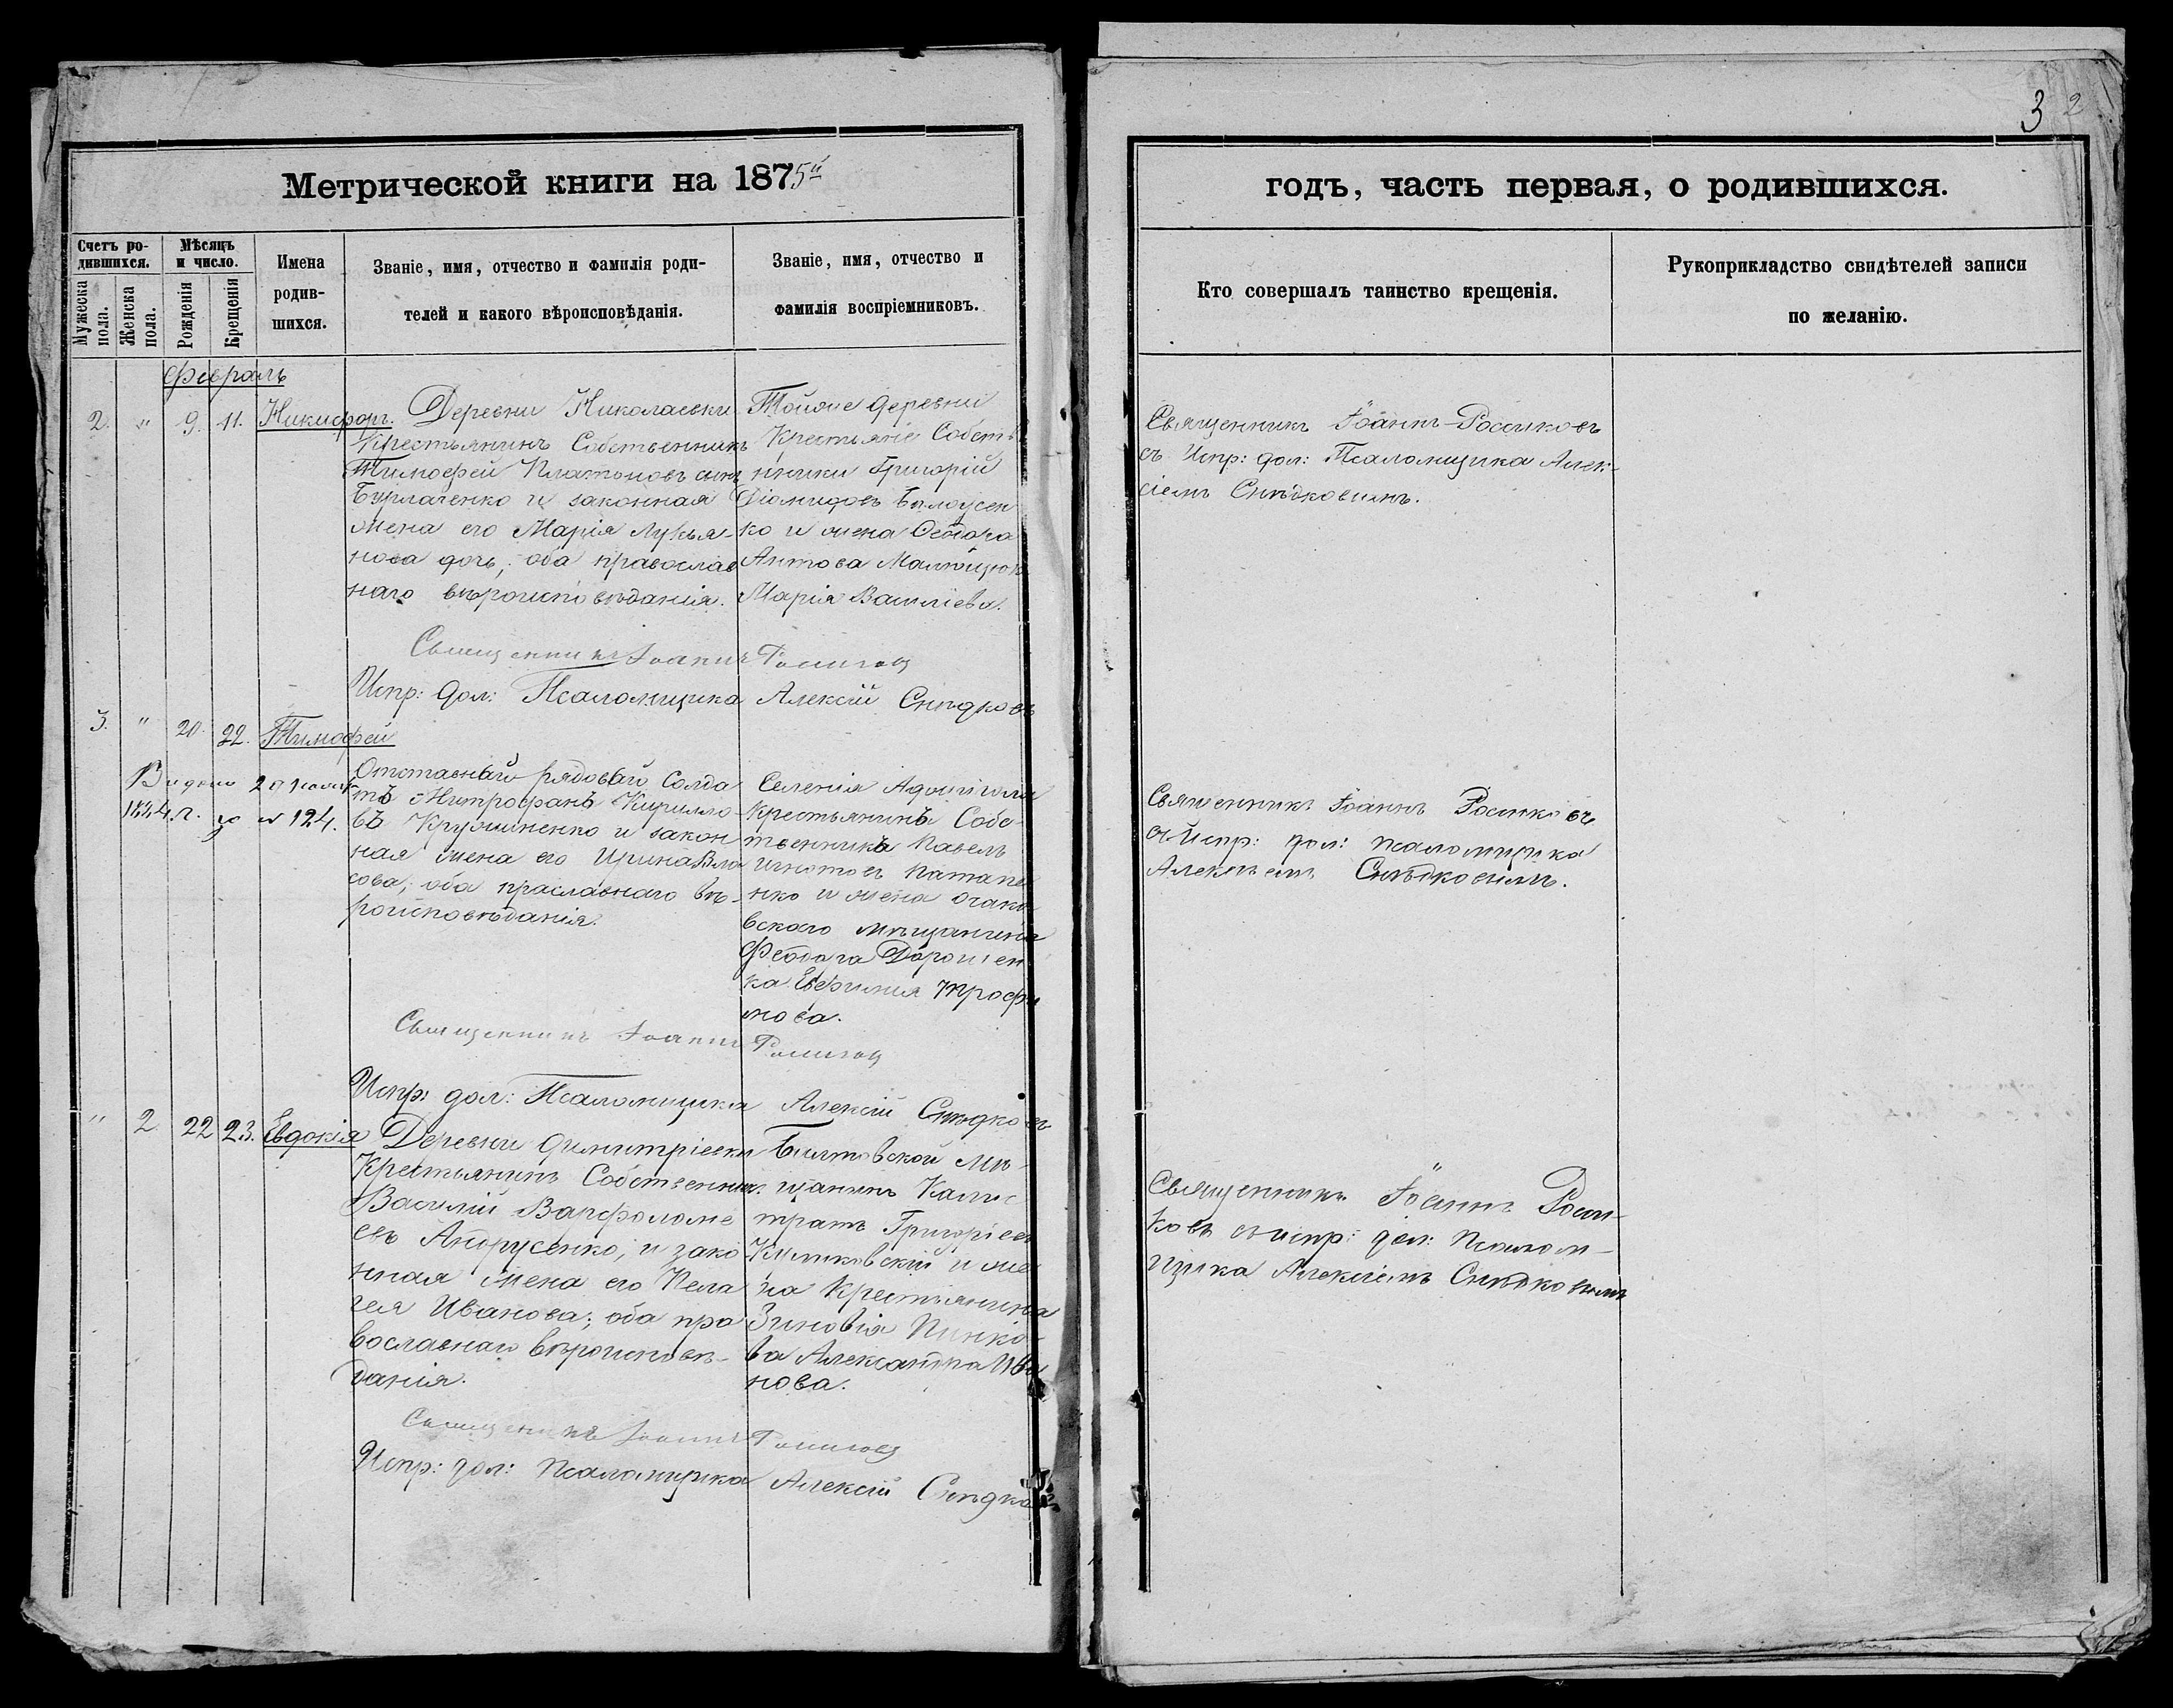 3 2
Метрической книги на 1875й
годъ, часть первая, о родившихся.
Счетъ ро-
дившихся.
Мужеска пола.
Женска пола.
Мѣсяцъ
и число.
Рожденія
Крещенія
Имена
родив-
шихся.
Званіе, имя, отчество и фамилія роди-
телей и какого вѣроисповѣданія.
Званіе, имя, отчество и
фамилія воспріемниковъ.
Кто совершалъ таинство крещенія.
Рукоприкладство свидѣтелей записи
по желанію.
Февраль
2. " 9. 11. Никифоръ.
Деревни Николаевки
Крестьянинъ Собственникъ
Тимофей Платоновъ сынъ
Бурлаченко и законная
жена его Марія Лукья-
нова дочь, оба православ
наго вѣроисповѣданія.
Тойже деревни
Крестьяне Собств
нники Григорій
Діомидовъ Бѣлоусен
ко и жена
Марія Васильева.
Священникъ Іоаннъ Россиковъ
съ Испр: дол: Псаломщика Алек-
сіемъ Снѣдковимъ.
Священникъ Іоаннъ
Испр: дол: Псаломщика Алексій Снѣдковъ
3. " 20. 22. Тимофей
Видано
1884 г. за № 124.
Отставный рядовый Солда
тъ Митрофанъ Кирилло-
въ и закон
ная жена его Ирина Вла
сова; оба праславнаго вѣ-
роисповѣданія.
Селенія
Крестьянинъ Собс-
твенникъ Павелъ
нко и жена очако
вскаго мѣщанина
Дорошен
ка Евфимия Трофи
мова.
Священникъ Іоаннъ Росиковъ
съ Испр: дол: псаломщика
Алексѣемъ Снѣдковимъ.
Священникъ Іоаннъ
Испр: дол: Псаломщика Алексій Снѣдковъ
" 2 22 23. Евдокія
Деревни Димитріевки
Крестьянинъ Собственник.
Василій Варфоломе
евъ Андрусенко, и зако
нная жена его Пела
гея Иванова; оба пра
вославнаго вѣроисповѣ-
данія.
мѣ-
щанинъ Калис
тратъ Григоріев
и же
на Крестьянина
Зиновія
ва Александра Ива
нова.
Священникъ Іоаннъ Росси-
ковъ съ испр: дол: Псалом-
щика Алексіемъ Снѣдковимъ
Священникъ Іоаннъ
Испр: дол: псаломщика Алексій Снѣдко